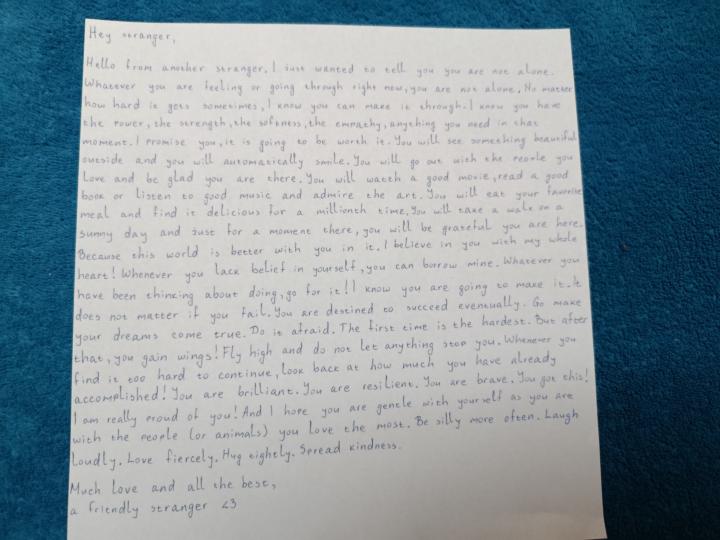 Hey stranger,
Hello from another stranger, I just wanted to tell you you are not alone.
Whatever you are feeling or going through right now, you are not alone. No matter
how hard it gets sometimes, I know you can make it through. I know you have
the power, the strength, the softness, the empathy, anything you need in that
moment. I promise you, it is going to be worth it. You will see something beautiful
outside and you will automatically smile. You will go out with the people you
love and be glad you are there. You will watch a good movie, read a good
book or listen to good music and admire the art. You will eat your favorite
meal and find it delicious for a millionth time. You will take a walk on a
sunny day and just for a moment there, you will be grateful you are here.
Because this world is better with you in it. I believe in you with my whole
heart! Whenever you lack belief in yourself, you can borrow mine. Whatever you
have been thinking about doing, go for it! I know you are going to make it. It
does not matter if you fail. You are destined to succeed eventually. Go make
your dreams come true. Do it afraid. The first time is the hardest. But after
that, you gain wings! Fly high and do not let anything stop you. Whenever you
find it too hard to continue, look back at how much you have already
accomplished! You are brilliant. You are resilient. You are brave. You got this!
I am really proud of you! And I hope you are gentle with yourself as you are
with the people (or animals) you love the most. Be silly more often. Laugh
loudly. Love fiercely. Hug tightly. Spread kindness.
Much love and all the best,
a friendly stranger <3